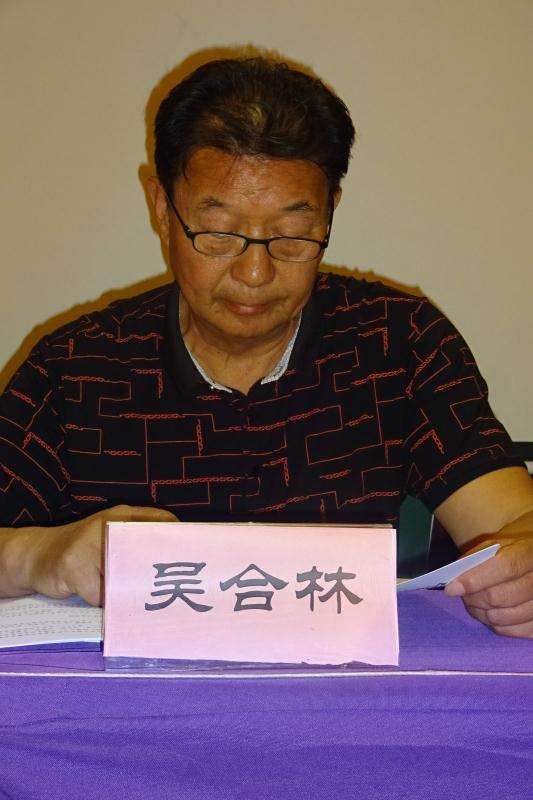 吴合林